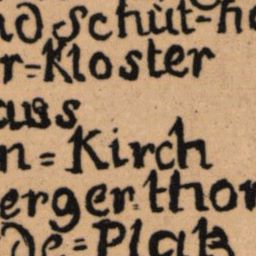 nd Schüt-h
r=Kloster
auss
n=Kirch
erger.thor
de=Platz